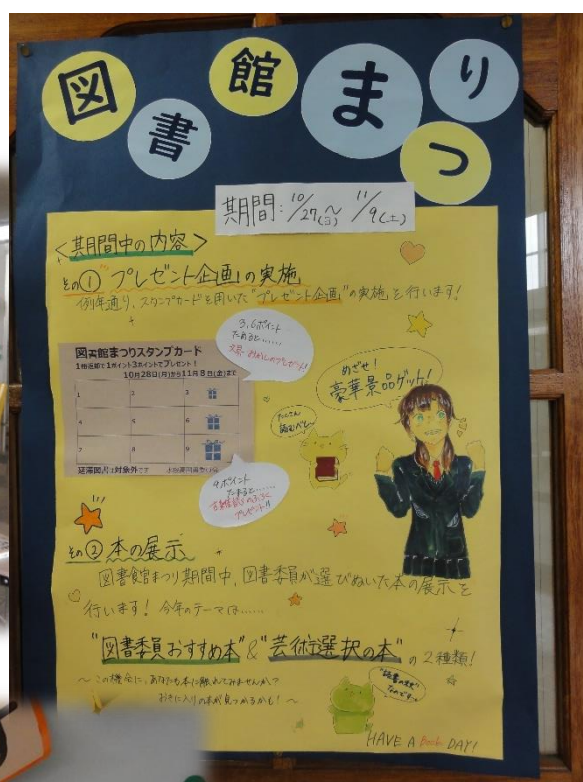 図書館まつり
期間:10/27(日)〜11/9(土)
<期間中の内容>
その① "プレゼント企画"の実施
例年通り、スタンプカードを用いた"プレゼント企画"の実施を行います!
3,6ポイント
ためると……
プレゼント!
図書館まつりスタンプカード
1冊返却で1ポイント3ポイントでプレゼント!
10月28日(月)から11月8日(金)まで
1
2
3
4
6
7
9
延滞図書は対象外です
めざせ!
豪華景品ゲット!
たくさん
読むべし
9ポイント
ためると……
プレゼント!!
その② 本の展示
図書館まつり期間中、図書委員が選びぬいた本の展示を
行います! 今年のテーマは……
"図書委員おすすめ本"&"芸術選択の本"の2種類!
〜この機会に、あなたも本に触れてみませんか?
お気に入りの本が見つかるかも!〜
"読書の秋"
なのです
HAVE A Book DAY!